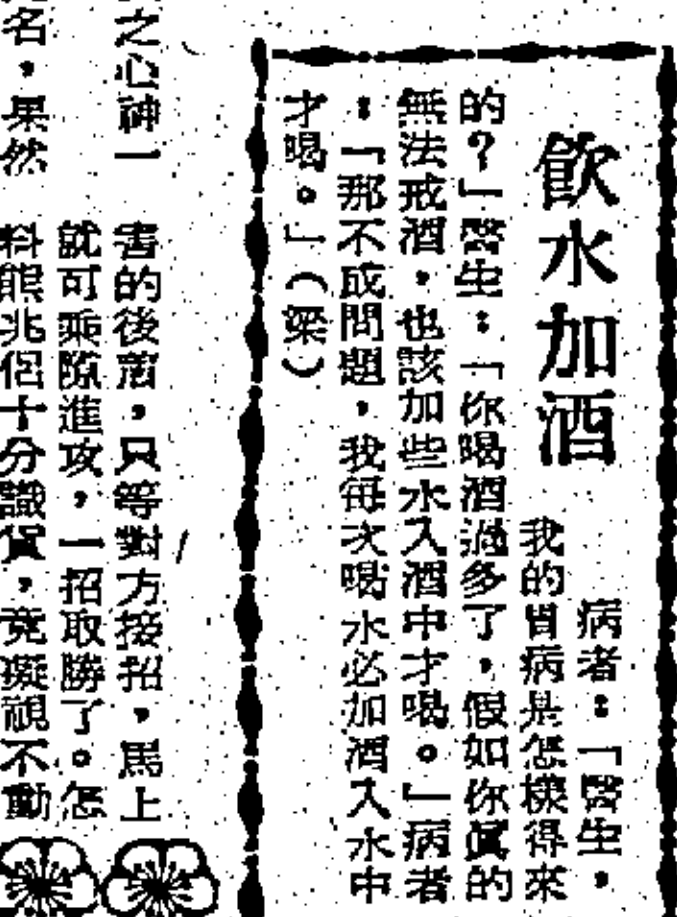 飲水加酒
病者：「醫生，
我的胃病是怎樣得來
的？」醫生：「你喝酒過多了，假如你眞的
無法戒酒，也該加些水入酒中才喝。」病者
：「那不成問題，我每次喝水必加酒入水中
才喝。」（梁）
之心神一
名，果然
害的後着，只等對方接招，馬上
就可乘隙進攻，一招取勝了。怎
料熊兆侶十分識貨，竟凝視不動